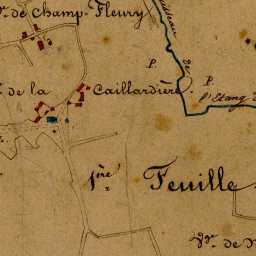 de Champ-Fleury
P.
de
P.
de la Caillardière
l'Etang
1ère Feuille